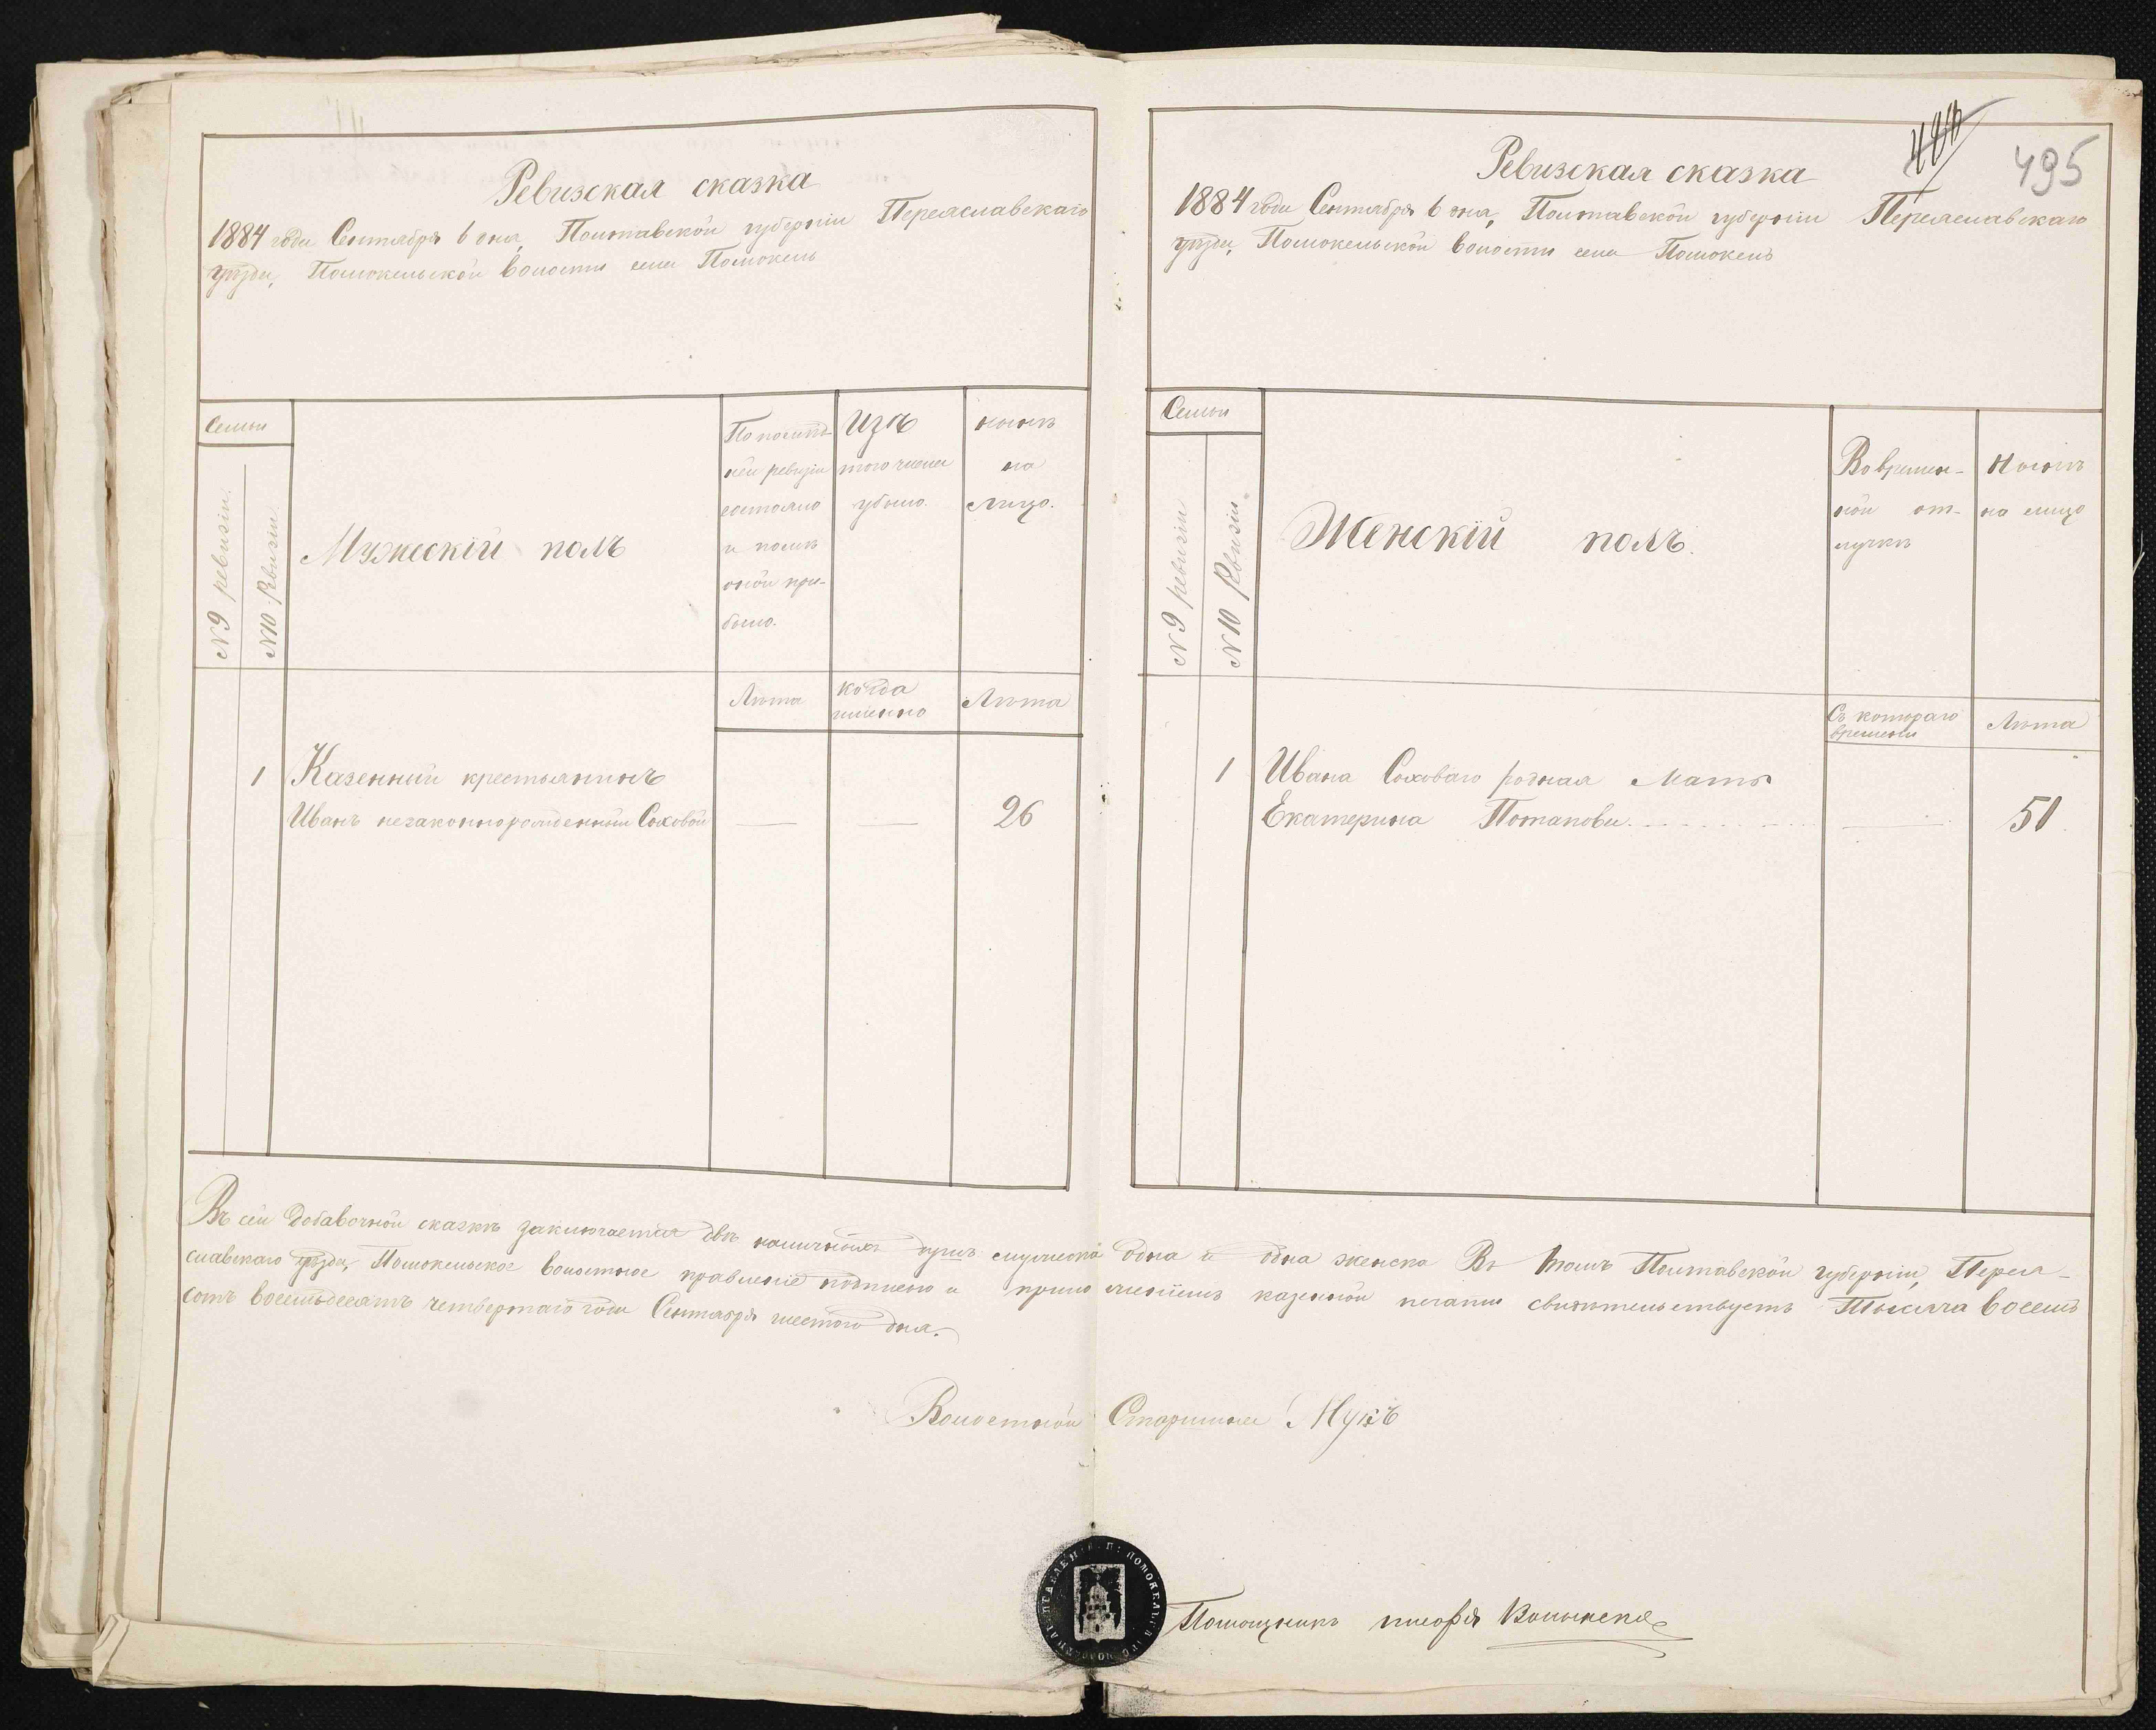 Ревизская сказка
1884 года Сентября 6 дня, Полтавской губернии Переяславскаго
уезда, Помокельской волости села Помокель
Семьи
№ 9 ревизіи.
№ 10 Ревизіи
Мужескій полъ
По послѣд-
ней ревизіи
состояло
и послѣ
оной при-
было.
Изъ
того числа
убыло.
нынѣ
на
лицо.
Лѣта
когда
именно
Лѣта
1 Казенный крестьянинъ
Иванъ незаконнорожденный Соховой — — 26
400
495
Ревизская сказка
1884 года Сентября 6 дня, Полтавской губерніи Переяславскаго
уезда, Помокельской волости села Помокель
Семьи
№ 9 ревизіи
№ 10 Ревизіи
Женскій полъ.
Во времен-
ной от-
лучкѣ
Нынѣ
на лицо
Съ котораго
времени
Лѣта
1 Ивана Соховаго родная мать
Екатерина Потапова — 51
Въ сей добавочной сказкѣ заключается двѣ наличныхъ душъ мужеска одна и одна женска Въ томъ Полтавской губерніи, Перея-
славскаго уѣзда, Помокельское волостное правленіе подписью и приложеніемъ казенной печати свидѣтельствуетъ Тысяча восемь
сотъ восемьдесятъ четвертаго года Сентября шестого дня.
Волостной Старшина Мукъ
Помощникъ писаря